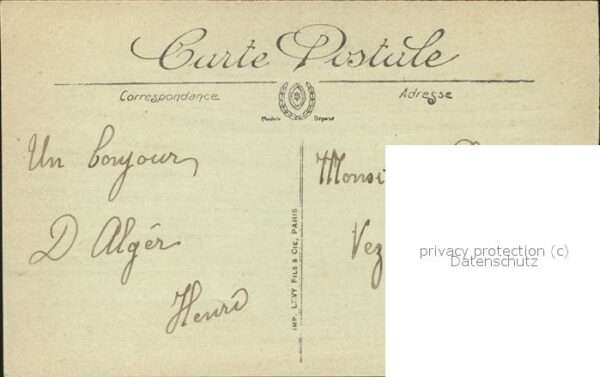 Carte Postale
Correspondance
Adresse
Modèle Déposé
Un bonjour
D Algér
Henri
IMP. LEVY FILS & CIE, PARIS
Monsi
Vez
privacy protection (c)
Datenschutz